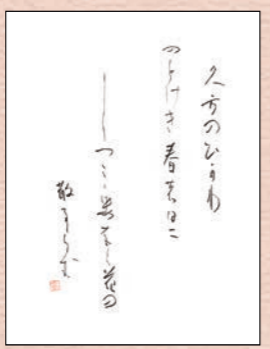 久方のひかり
のとけき春の日に
しつこゝ路なく花の
散るらむ